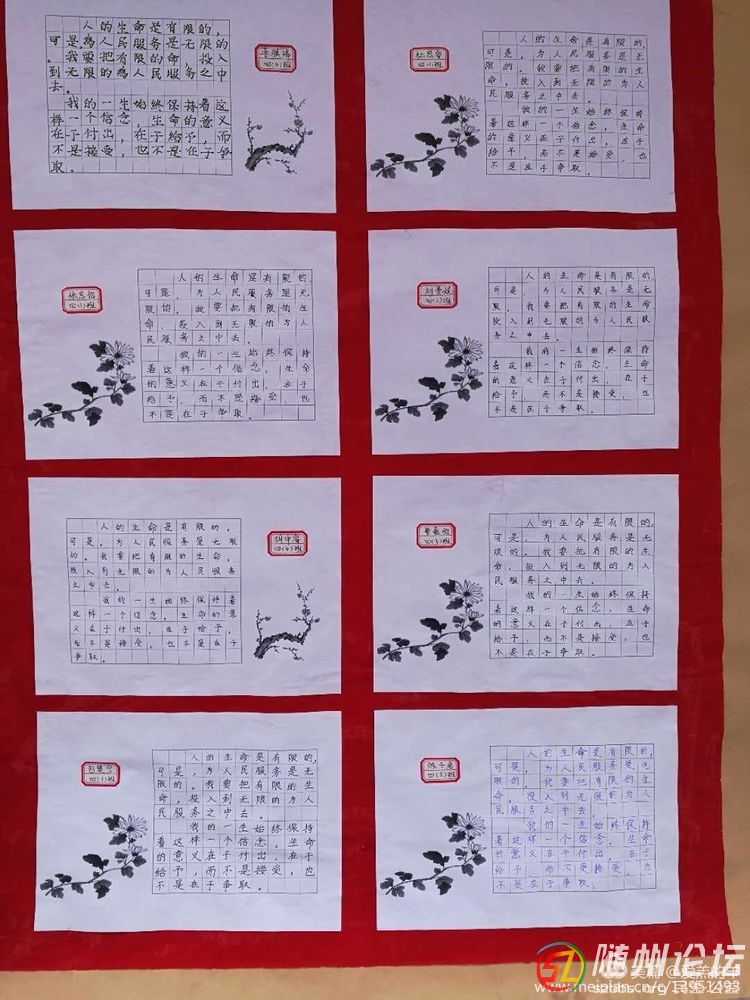 人的生命是有限的，
可是，為人民服务是无限的
。我要把有限的生命，投入
到无限的為人民服务之中
去。
我的一生始终保持着这
样一个信念，生命的意义
在于付出，在于给予，而
不是接受，也不是在于争
取。
四(1)班
人的生命是有限的，
可是，为人民服务是无
限的。我要把有限的生
命，投入到无限的为人
民服务之中去。
我的一生始终保持
着这样一个信念，生命
的意义在于付出，在于
给予，而不是接受，也
不是在于争取。
四(1)班
人的生命是有限的
可是，为人民服务是无
限的，我要把有限的生
命，投入到无限的为人
民服务之中去。
我的一生始终保持
着这样一个信念，生命
的意义在于付出，在于
给予，而不是接受，也
不是在于争取。
人的生命是有限的
可是，为人民服务是无
限。我要把有限的生命
投入到无限的为人民服
务人中去。
我的一生始终保持
着这样一个信念，生命
的意义在于付出，在于
给予，而不是接受，也
不是在于争取。
胡中睿
四(4)班
人的生命是有限的。
可是，为人民服务是无限
的。我要把有限的生命，
投入有无限的为人民服务
之中去。
我的一生始终保持着
这样一个信念。生命的意
义在于付出，在于给予，
而不是接受，也不是在于
争取。
四(5)班
人的生命是在限的，
可是，为人民服务是无
限的。我要把有限的生
命，投入到无限的为人
民服务之中去。
我的一生始终保持
着这样一个信念，生命
的意义在于付出，在于
给予，而不是接受，也
不是在于争取。
四(1)班
人的生命是有限的，
可是，为人民服务是无
限的。我要把有限的生
命，投入到无限的为人
民服务之中去。
我的一生始终保持
着这样一个信念，生命
的意义在于付出，在于
给予，而不是接受，也
不是在于争取。
四(5)班
人的生命是有限的，
可是，为人民服务是无
限的。我要把有限的生
命，投入到无限的为人
民服务之中去。
我的一生始终保持
着这样一个信念，生命
的意义在于付出，在于
给予，而不是接受，也
不是在于争取。
随州论坛